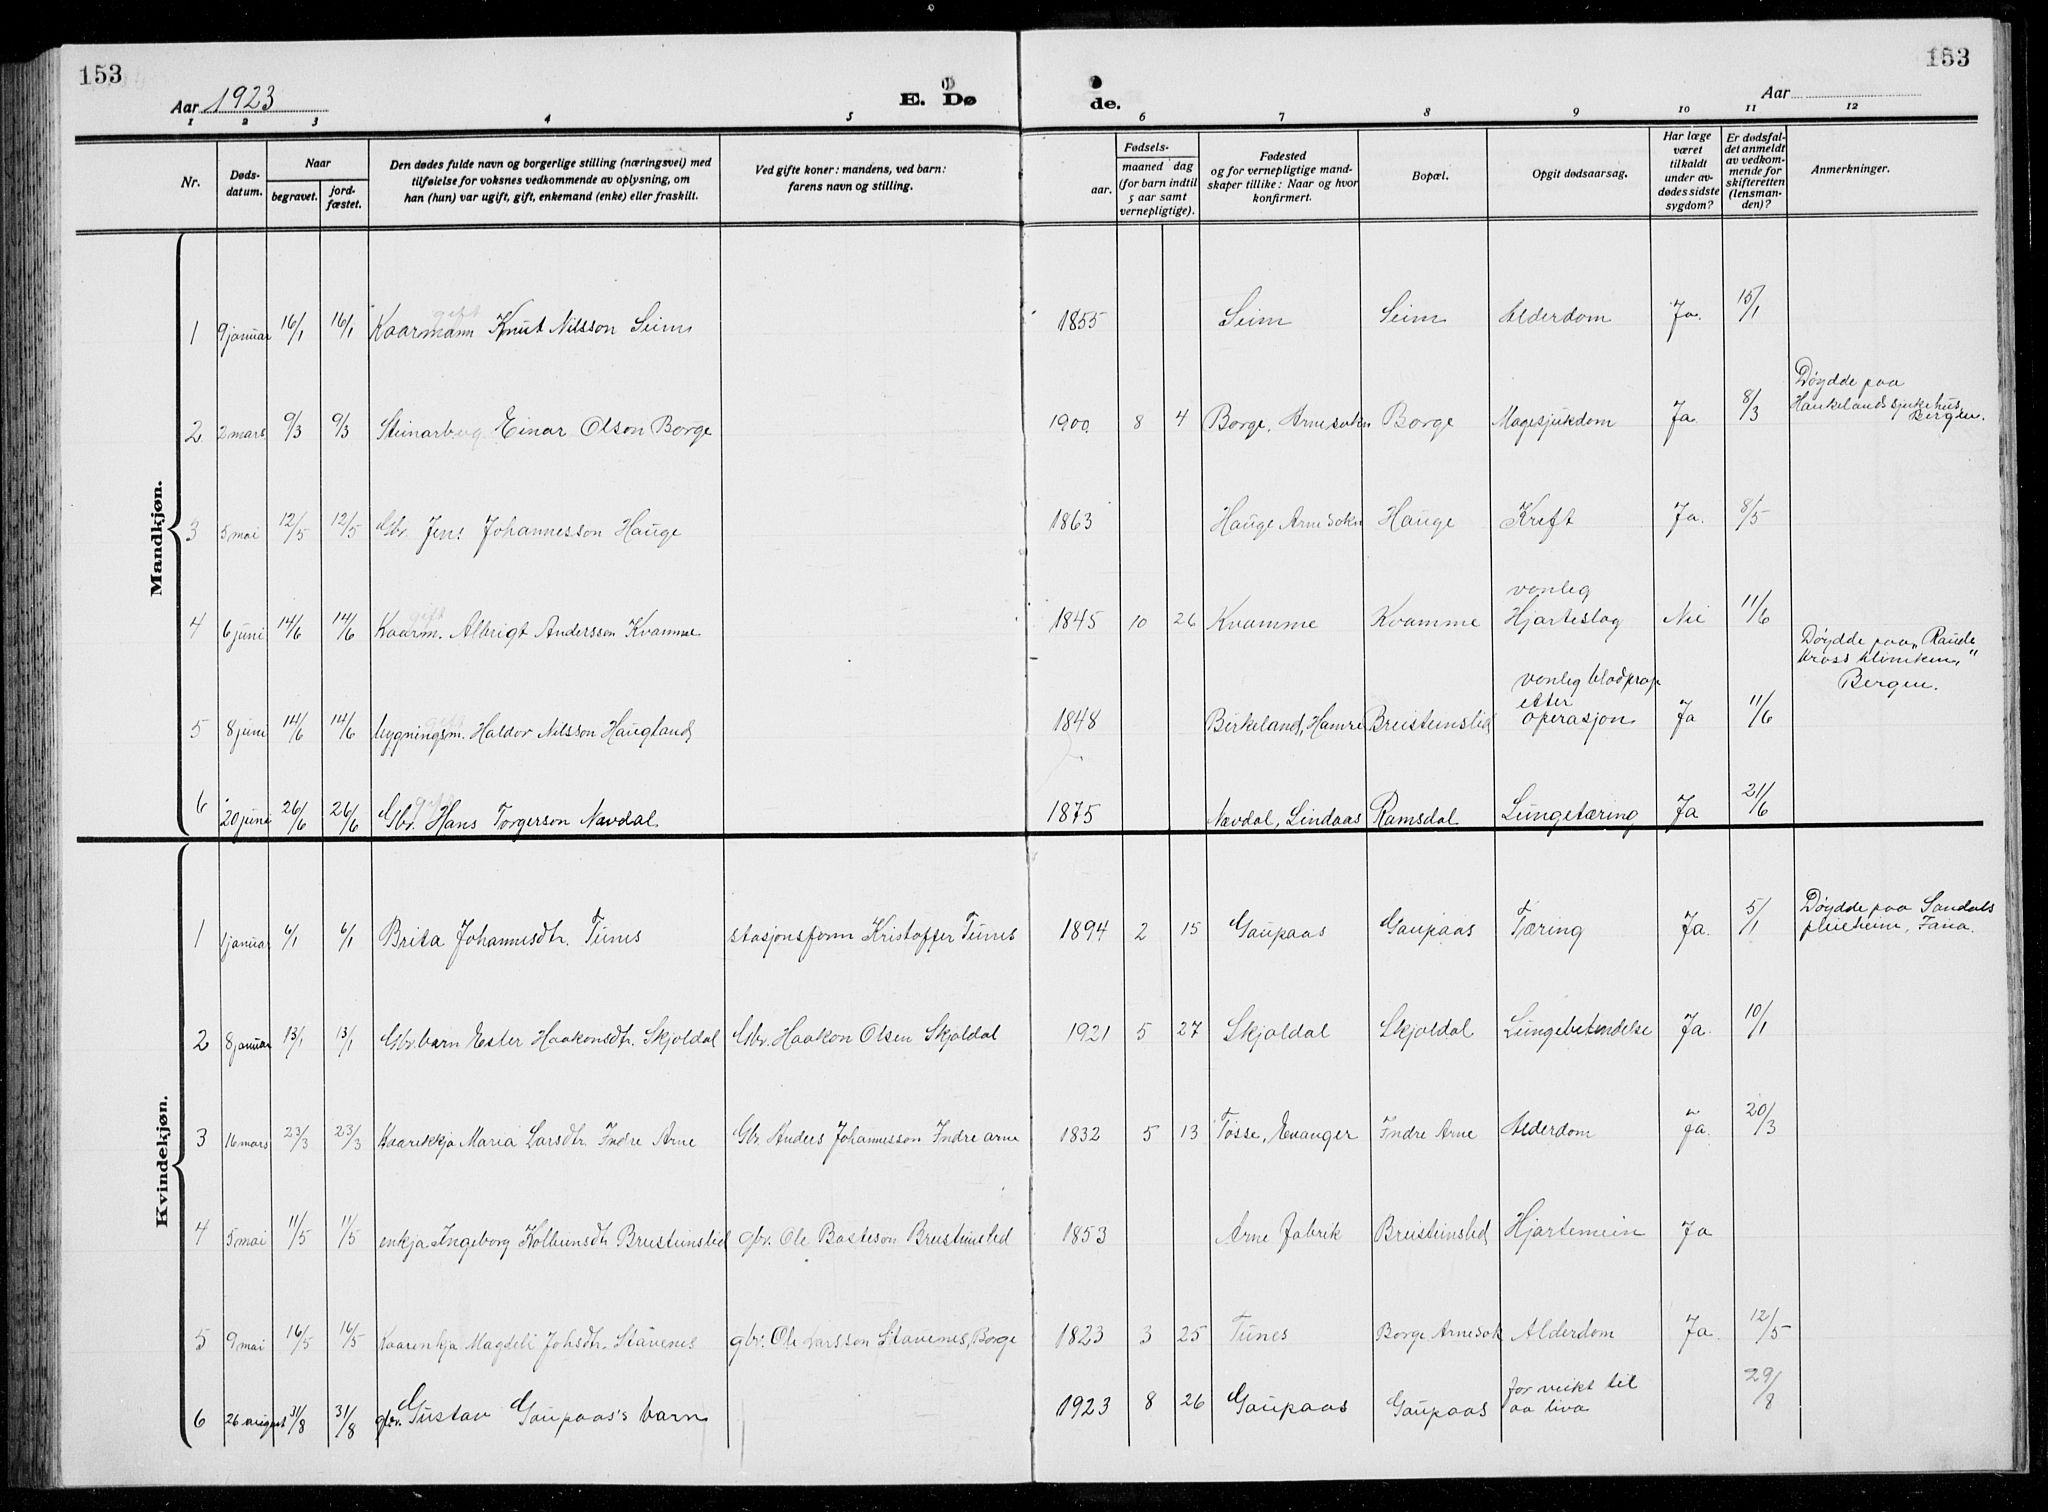 153
153
Aar 1923
E. Dø
de.
Aar
1 2 3 4 5 6 7 8 9 10 11 12
Nr.
Døds-
datum.
Naar
begravet.
jord-
fæstet.
Den dødes fulde navn og borgerlige stilling (næringsvei) med
tilføielse for voksnes vedkommende av oplysning, om
han (hun) var ugift, gift, enkemand (enke) eller fraskilt.
Ved gifte koner: mandens, ved barn:
farens navn og stilling.
Fødsels-
aar.
maaned dag
(for barn indtil
5 aar samt
vernepligtige).
Fødested
og for vernepligtige mand-
skaper tillike: Naar og hvor
konfirmert.
Bopæl.
Opgit dødsaarsag.
Har læge
været
tilkaldt
under av-
dødes sidste
sygdom?
Er dødsfal-
det anmeldt
av vedkom-
mende for
skifteretten
(lensman-
den)?
Anmerkninger.
Mandkjøn.
gift
1 9 januar 16/1 16/1 Kaarmann Knut Nilsson Seim 1855 Seim Seim Alderdom Ja. 15/1
2 2 mars 9/3 9/3 Steinarb. Einar Olson Borge 1900 8 4 Borge, Arnesokn Borge Magesjukdom Ja. 8/3 Døydde paa
Haukelandssjukehus,
Bergen.
3 5 mai 12/5 12/5 Gbr. Jens Johannesson Hauge 1863 Hauge Arnesokn Hauge Kreft Ja. 8/5
gift
4 6 juni 14/6 14/6 Kaarm. Albrigt Andersson Kvamme 1845 10 26 Kvamme Kvamme vonleg
Hjarteslag Nei 11/6
gift
5 8 juni 14/6 14/6 bygningsm. Haldor Nilsson Haugland 1848 Birkeland, Hamre Breisteinslid vonleg blodprop
etter
operasjon Ja 11/6 Døydde paa "Raude
kross kliniken,"
Bergen.
gift
6 20 juni 26/6 26/6 Gbr. Hans Torgerson Nævdal 1875 Nævdal, Lindaas Ramsdal Lungetæring Ja 21/6
Kvindekjøn.
1 1 januar 6/1 6/1 Brita Johannesdtr. Tunes stasjonsform Kristoffer Tunes 1894 2 15 Gaupaas Gaupaas Tæring Ja. 5/1 Døydde paa Sandals
pleieheim, Fana.
2 8 januar 13/1 13/1 Gbr. barn Ester Haakonsdtr. Skjoldal Gbr. Haakon Olsen Skjoldal 1921 5 27 Skjoldal Skjoldal Lungebetendelse Ja. 10/1
3 16 mars 23/3 23/3 Kaarekkja Maria Larsdtr. Indre Arne Gbr. Anders Johannesson Indre arne 1832 5 13 Tøsse, Evanger Indre Arne Alderdom Ja. 20/3
4 5 mai 11/5 11/5 enkja Ingeborg Kolbeinsdtr Breisteinslid gbr. Ole Basteson Breisteinslid 1853 Arne fabrik Breisteinslid Hjartemein Ja
5 9 mai 16/5 16/5 Kaarenkja Magdeli Johsdtr. Stavenes gbr. Ole Larsson Stavenes, Borge 1823 3 25 Tunes Borge Arnesok Alderdom Ja. 12/5
6 26 august 31/8 31/8 gbr. Gustav Gaupaas's barn 1923 8 26 Gaupaas Gaupaas for veikt til
aa liva 29/8